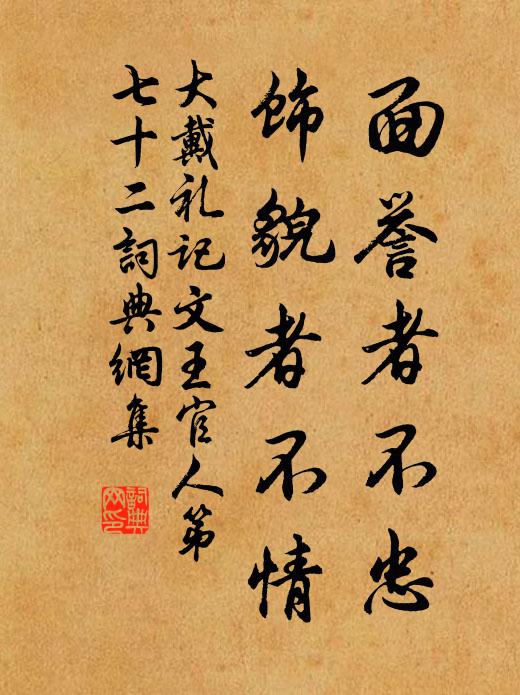 面誉者不忠
饰貌者不情
大戴礼记文王官人第
七十二詞典網集
詞典
网印